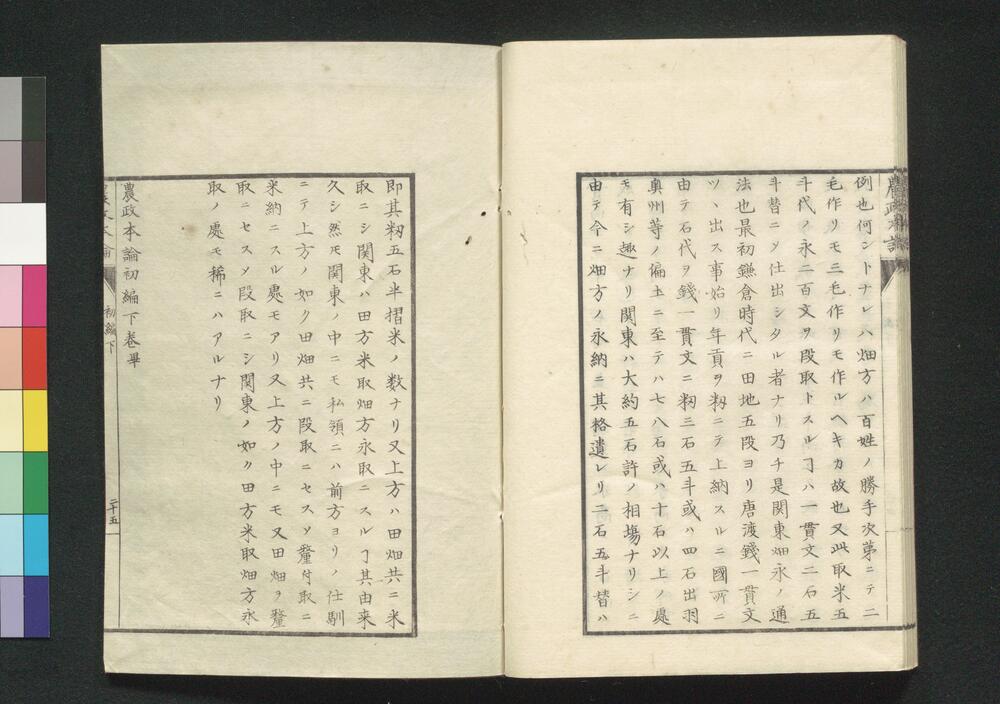 農政本論
例也何ントナレハ畑方ハ百姓ノ勝手次第ニテ二
毛作リモ三毛作リモ作ルヘキカ故也又此取米五
斗代ノ永二百文ヲ段取トスルヿハ一貫文二石五
斗替ニメ仕出シタル者ナリ乃チ是関東畑永ノ通
法也最初鎌倉時代ニ田地五段ヨリ唐渡錢一貫文
ツヽ出ス事始リ年貢ヲ籾ニテ上納スルニ國所ニ
由テ石代ヲ錢一貫文ニ籾三石五斗或ハ四石出羽
奥州等ノ偏土ニ至テハ七八石或ハ十石以上ノ處
モ有シ趣ナリ関東ハ大約五石許ノ相場ナリシニ
由テ今ニ畑方ノ永納ニ其格遺レリ二石五斗替ハ
即其籾五石半摺米ノ数ナリ又上方ハ田畑共ニ米
取ニシ関東ハ田方米取畑方永取ニスルヿ其由来
久シ然モ関東ノ中ニモ私領ニハ前方ヨリノ仕馴
ニテ上方ノ如ク田畑共ニ段取ニセスメ釐付取ニ
米納ニスル處モアリ又上方ノ中ニモ又田畑ヲ釐
取ニセスメ段取ニシ関東ノ如ク田方米取畑方永
取ノ處モ稀ニハアルナリ
農政本論初編下巻畢
初編下
二十五